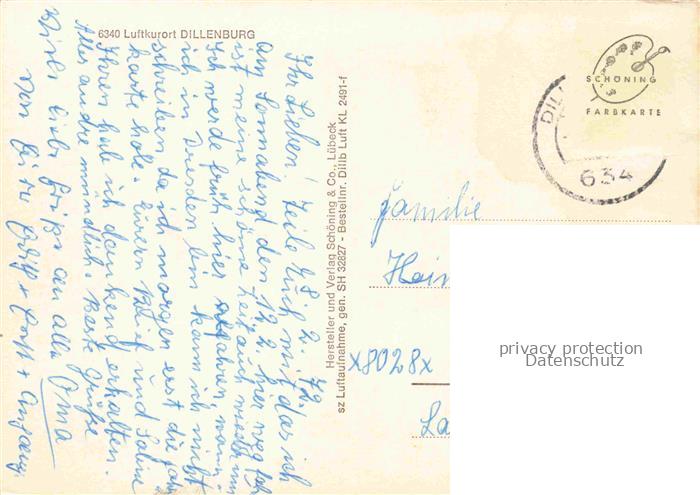 6340 Luftkurort DILLENBURG
8.2.72.
Ihr Lieben! Teile Euch mit das ich
am Sonnabend den 12.2. hier weg fahre
ist meine schöne Zeit auch wieder um
Ich werde früh hier abfahren, wann
ich in Dresden bin kann ich nicht
schreiben da ich morgen erst die Fahr
karte hole. Euern Brief und
Ihren hab ich dankend erhalten.
Alles andre mündlich. Beste Grüße
Viele liebe Grüße an alle Oma
von
Hersteller und Verlag Schöning & Co., Lübeck
sz Luftaufnahme, gen. SH 32827 - Bestellnr. Dillb Luft KL 2491-f
SCHÖNING
FARBKARTE
DILL
634
Familie
Hein
x8028x
La
privacy protection
Datenschutz